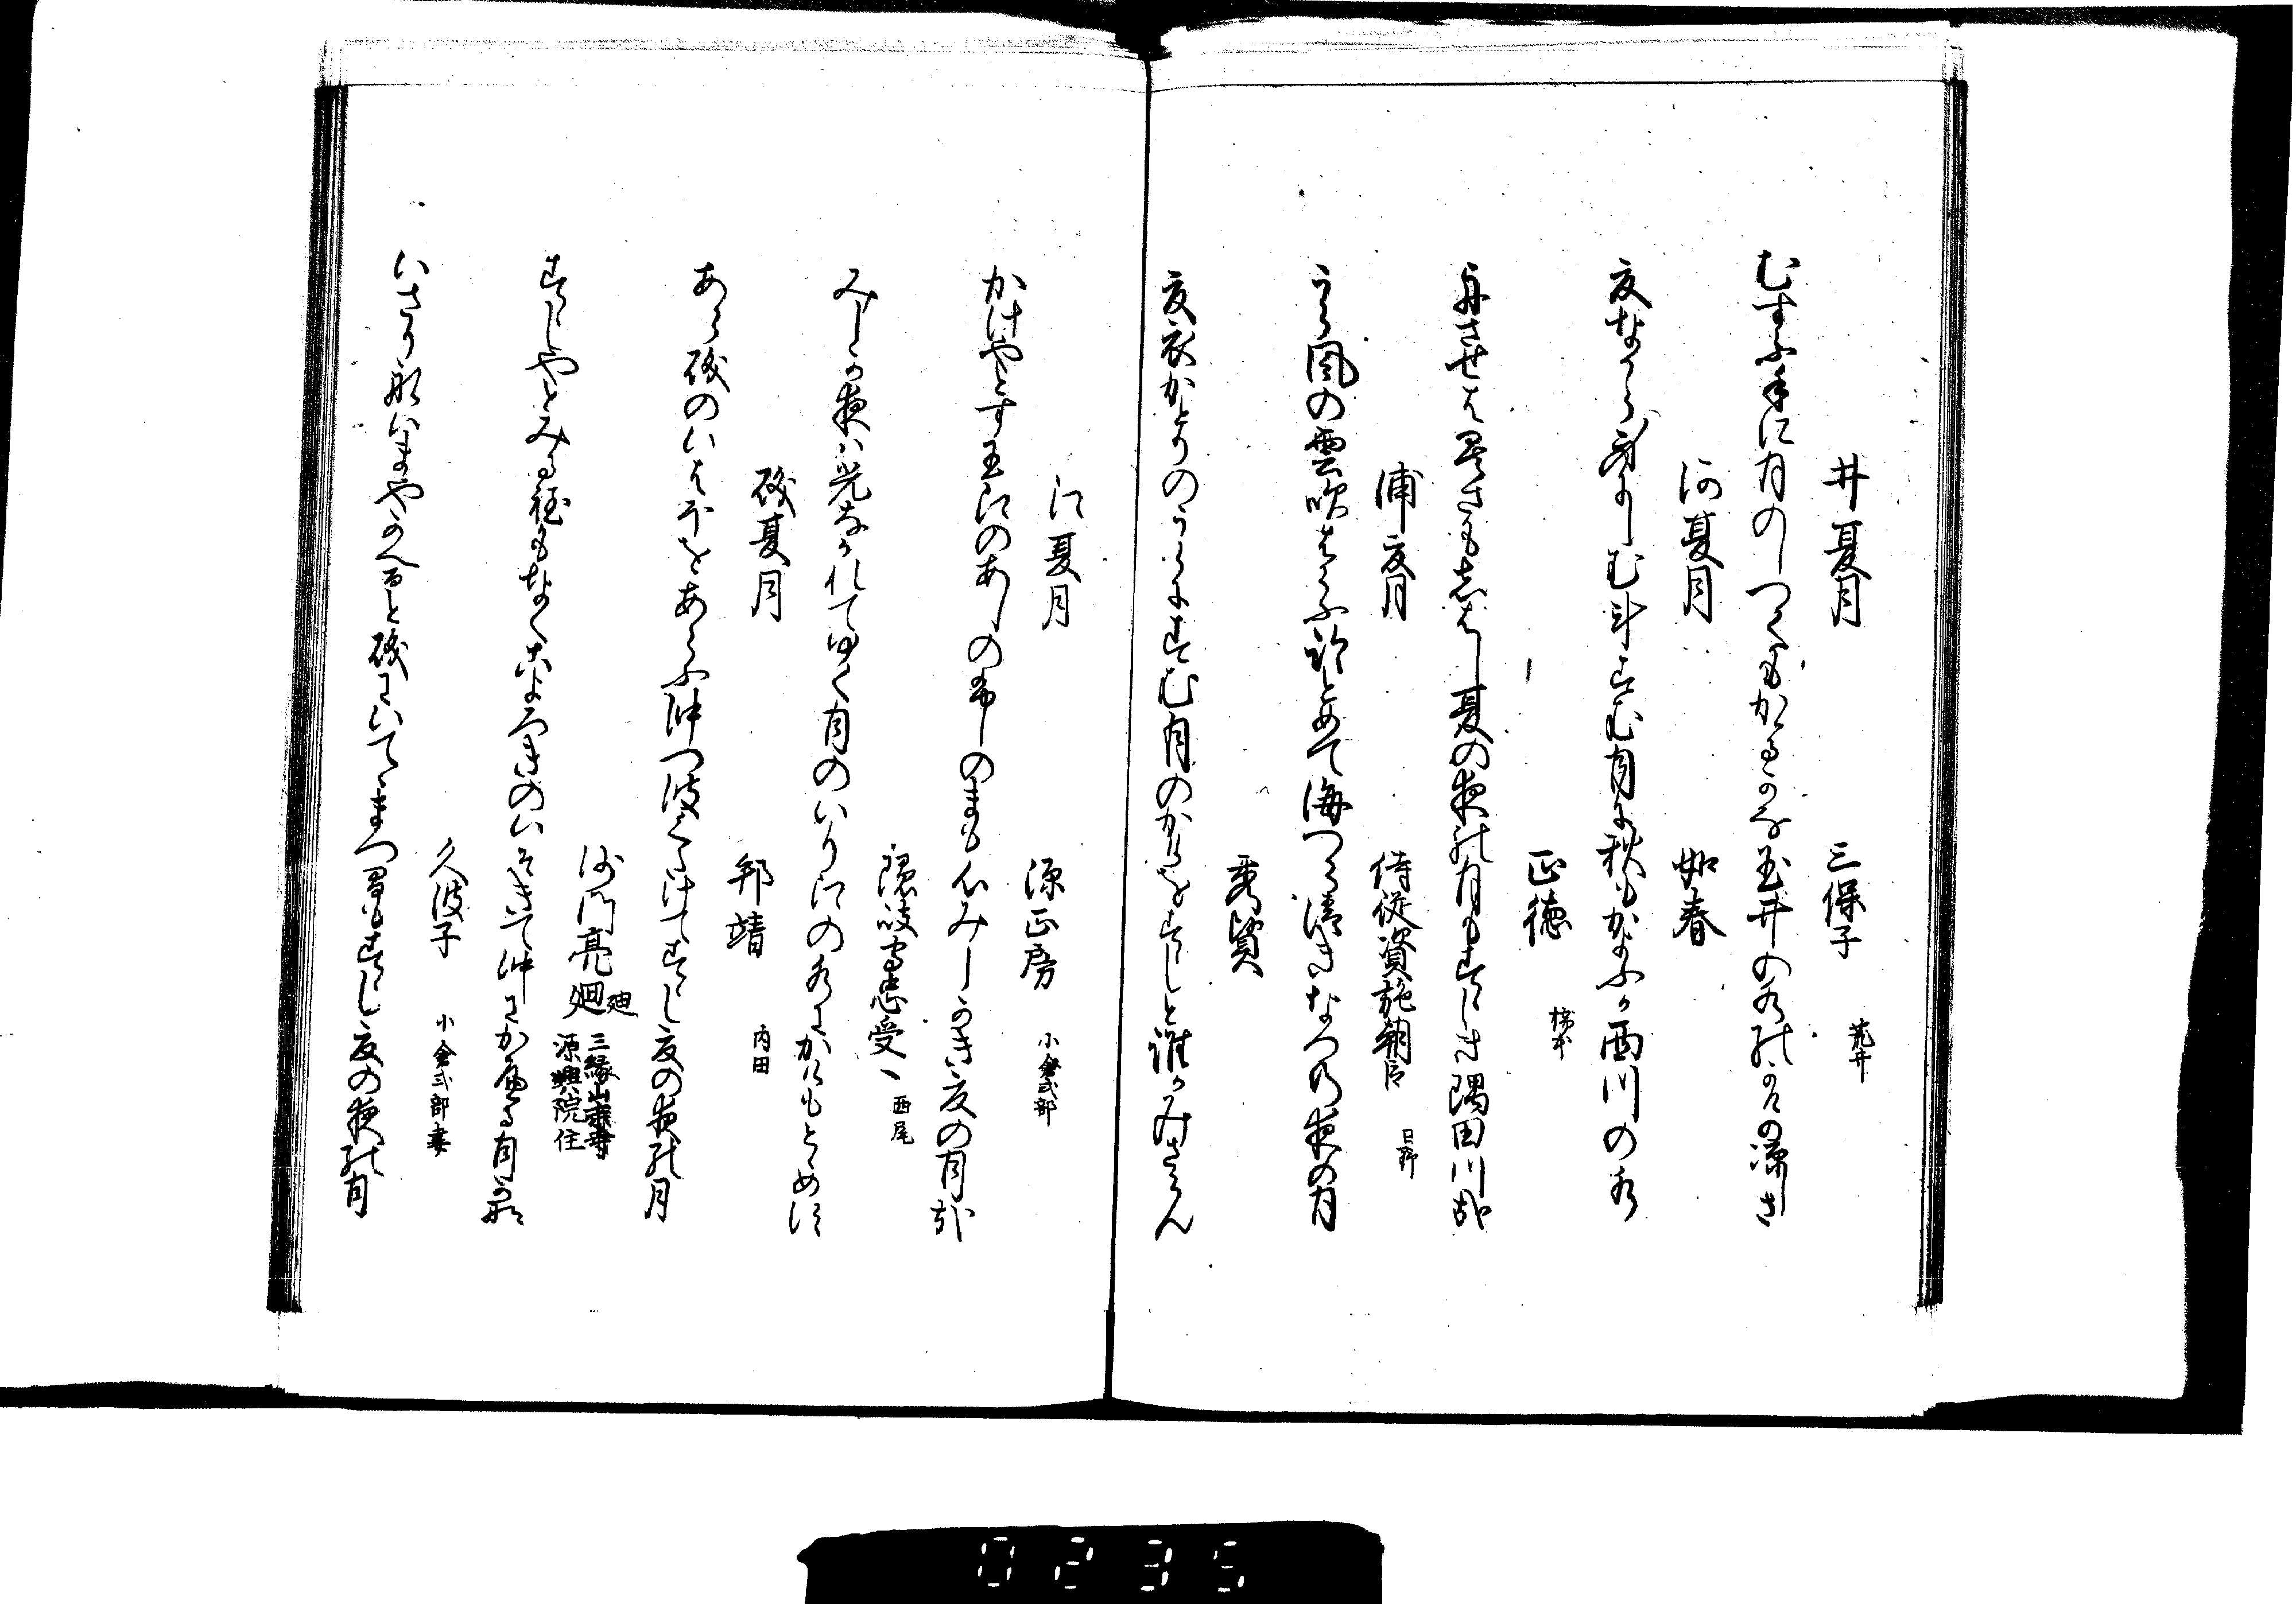 井夏月 三保子 荒井
むすふ手に月のしつくもかゝるかな玉井の水のかけの凉さ
河夏月 如春
夏なから身にしむ斗すむ月に秋もかよふか西川の水
正徳 橋本
舟させは暑さも志はし夏の夜の月もすゝしき隅田川哉
浦夏月 侍従資施朝臣 日野
うら風の雲吹はらふ跡とめて海つら清きなつの夜の月
秀賢
夏衣かとりのうらにすむ月のかけをすゝしと誰かみさらん
江夏月 源正房 小倉式部
かけやとす玉江のあしの
みしか夜は光なかれてゆく月のいり江の水にかけもとゝめす
隠岐守忠受 西尾
磯夏月 邦靖 内田
あら磯のいはほをあらふ沖つ波くたけてすゝし夏の夜の月
沙門亮廻 廸 三縁山 源興院住
すゝしやとみる
久波子 小倉式部妻
いさり舟いまやかへると磯にいてゝまつ間もすゝし夏の夜の月
0235